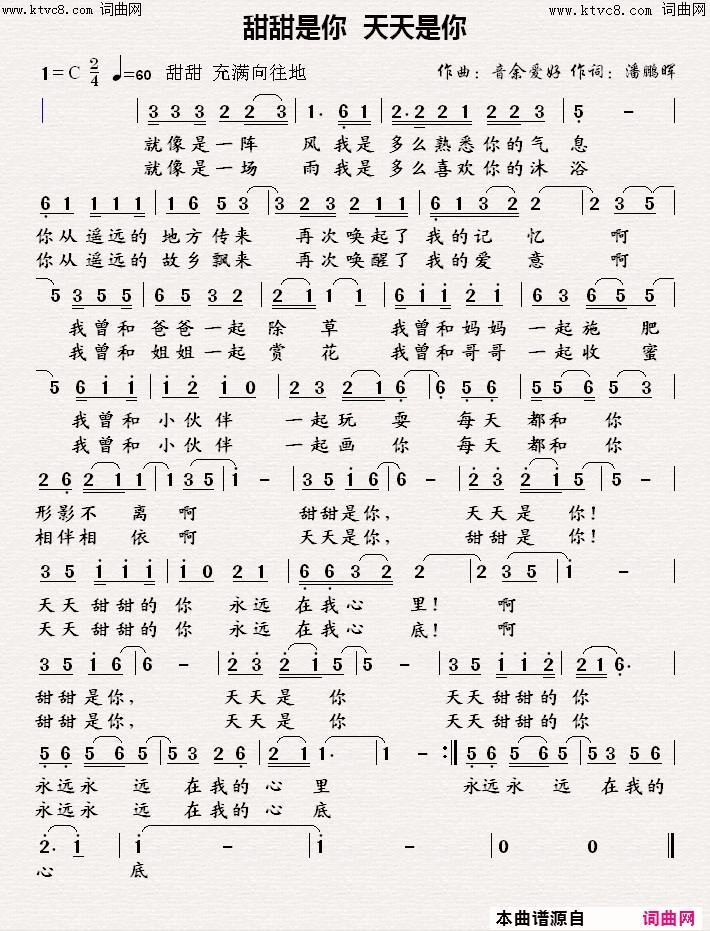 www.ktvc8.com 词曲网 www.ktvc8.com 词曲网
甜甜是你 天天是你
1=C 2/4 ♩=60 甜甜 充满向往地 作曲：音余爱好 作词：潘鹏晖
3 3 3 2 2 3 | 1. 6 1 | 2. 2 2 1 2 2 3 | 5 - |
就像是一阵 风我是 多么熟悉你的气 息
就像是一场 雨我是 多么喜欢你的沐 浴
6 1 1 1 1 | 1 6 5 3 | 3 2 3 2 1 1 | 6 1 3 2 2 | 2 3 5 |
你从遥远的 地方传来 再次唤起了 我的记 忆 啊
你从遥远的 故乡飘来 再次唤醒了 我的爱 意 啊
5 3 5 5 | 6 5 3 2 | 2 1 1 | 6 1 2 1 | 6 3 6 5 5 |
我曾和 爸爸一起 除 草 我曾和妈妈 一起施 肥
我曾和 姐姐一起 赏 花 我曾和哥哥 一起收 蜜
5 6 1 1 | 1 2 1 0 | 2 3 2 1 6 | 6 5 6 | 5 5 6 5 3 |
我曾和 小伙伴 一起玩 耍 每天 都和 你
我曾和 小伙伴 一起画 你 每天 都和 你
2 6 2 1 1 | 1 3 5 | 1 - | 3 5 1 6 | 6 - | 2 3 2 1 5 | 5 - |
形影不 离 啊 甜甜是你， 天天是 你！
相伴相 依 啊 天天是你， 甜甜是 你！
3 5 1 1 1 | 1 0 2 1 | 6 6 3 2 2 | 2 - | 2 3 5 | 1 - |
天天 甜甜的 你 永远 在我心 里！ 啊
天天 甜甜的 你 永远 在我心 底！ 啊
3 5 1 6 | 6 - | 2 3 2 1 5 | 5 - | 3 5 1 1 2 | 2 1 6. |
甜甜是你， 天天是 你 天天甜甜的 你
甜甜是你， 天天是 你 天天甜甜的 你
5 6 5 6 5 | 5 3 2 6 | 2 1 1. | 1 - :| 5 6 5 6 5 | 5 3 5 6 |
永远永 远 在我的 心 里 永远永 远 在我的
永远永 远 在我的 心 底
2. 1 | 1 - | 1 - | 0 0 |
心 底
本曲谱源自 词曲网